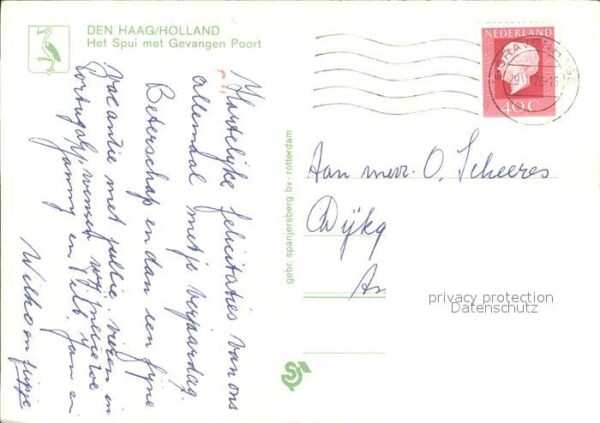 DEN HAAG/HOLLAND
Het Spui met Gevangen Poort
Hartelijke felicitaties van ons
allemaal met je verjaardag.
Beterschap en dan een fijne
vacantie met jullie vieren in
Portugal, wensen
Jammy en Jan en
Wilhoen
gebr. spanjersberg bv - rotterdam
NEDERLAND
40 C
Aan mevr. O. Scheeres
Dijkg
An
privacy protection
Datenschutz